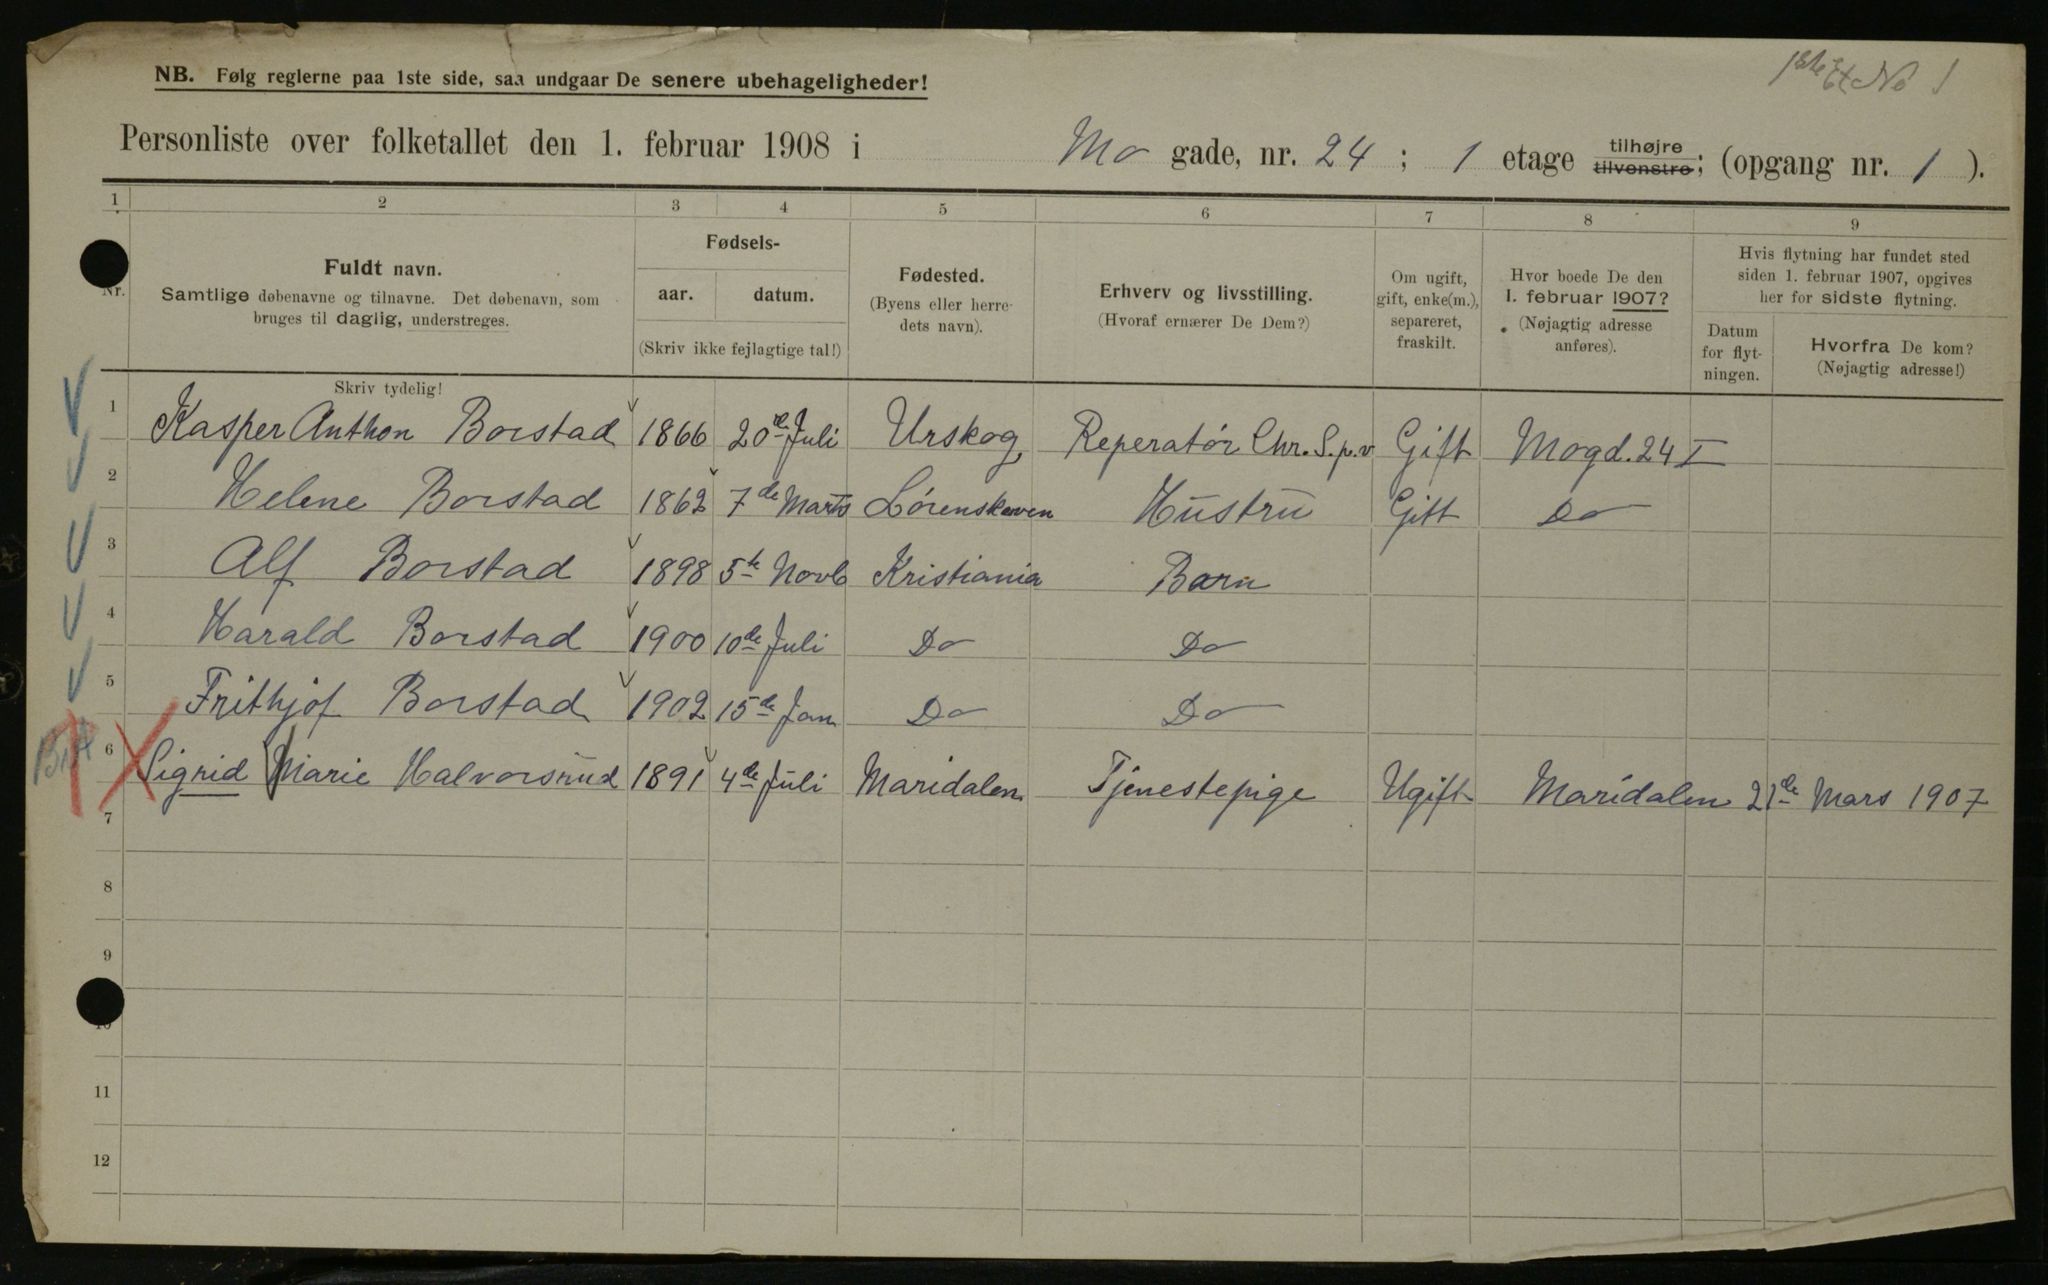 1ste Et No 1
NB. Følg reglerne paa 1ste side, saa undgaar De senere ubehageligheder!
Personliste over folketallet den 1. februar 1908 i Mo gade, nr. 24 ; 1 etage tilhøjre tilvenstre; (opgang nr. 1 ).
1 2 3 4 5 6 7 8 9
Nr.
Fuldt navn.
Samtlige døbenavne og tilnavne. Det døbenavn, som
bruges til daglig, understreges.
Skriv tydelig!
Fødsels-
aar. datum.
(Skriv ikke fejlagtige tal!)
Fødested.
(Byens eller herre-
dets navn).
Erhverv og livsstilling.
(Hvoraf ernærer De Dem?)
Om ugift,
gift, enke(m.),
separeret,
fraskilt.
Hvor boede De den
1. februar 1907?
(Nøjagtig adresse
anføres).
Hvis flytning har fundet sted
siden 1. februar 1907, opgives
her for sidste flytning.
Datum
for flyt-
ningen.
Hvorfra De kom?
(Nøjagtig adresse!)
1 Kasper Anthon Borstad 1866 20de Juli Urskog Reperatør Chr. S.p.v Gift Mogd. 24 I
2 Helene Borstad 1862 7de Marts Lørenskoven Hustru Gift Do
3 Alf Borstad 1898 5te Novb Kristiania Barn
4 Harald Borstad 1900 10de Juli Do Do
5 Frithjof Borstad 1902 15de Jan Do Do
6 Sigrid Marie Halvorsrud 1891 4de Juli Maridalen Tjenestepige Ugift Maridalen 21de Mars 1907
7
8
9
10
11
12